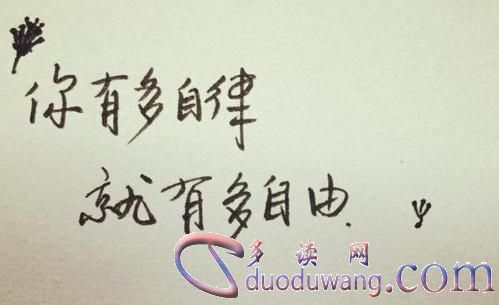 你有多自律
就有多自由.
多读网
duoduwang.com